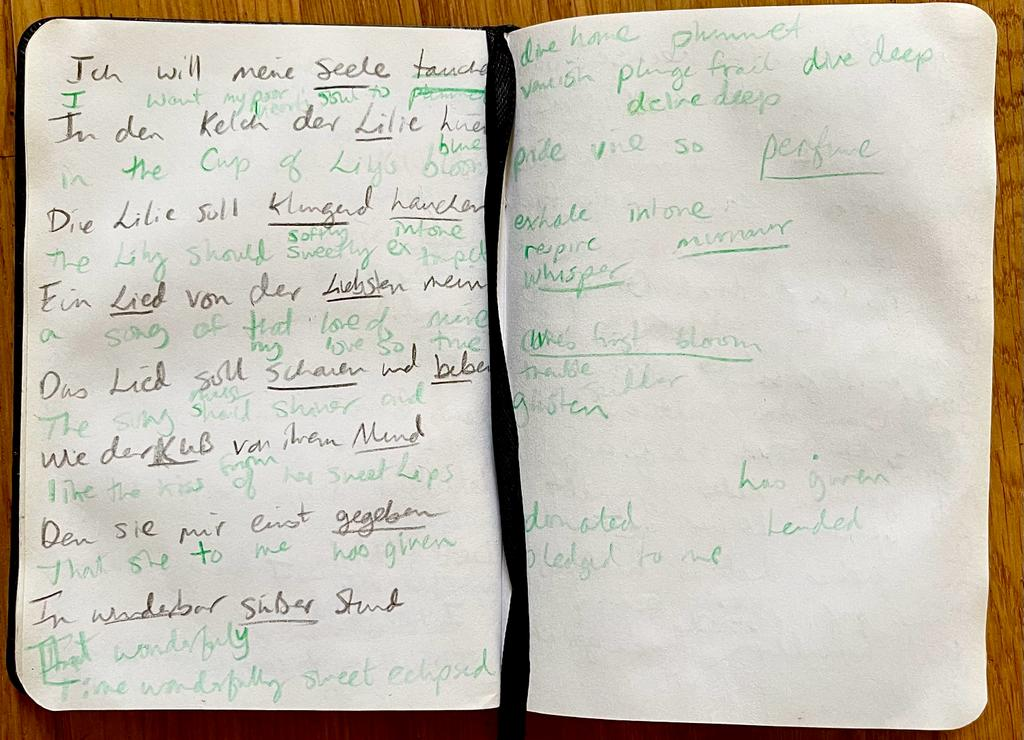 Ich will meine Seele tauche
I want my poor heart's soul to plummet
In den Kelch der Lilie hinei
blue
in the Cup of Lily's bloom
Die Lilie soll klingend hauchen
softly intone
the Lily should sweetly ex
Ein Lied von der Liebsten mein
a song of that love of mine
my love so true
Das Lied soll schauern und beben
must
The song should shiver and
Wie der Kuß von ihrem Mund
from
like the kiss of her sweet Lips
Den sie mir einst gegeben
That she to me has given
In wunderbar süßer Stund
That wonderfully
Time wonderfully sweet eclipsed
dive home plummet
vanish plunge frail dive deep
delve deep
pride vine so perfume
exhale intone
respire murmur
whisper
first bloom
glisten
has given
donated tended
pledged to me